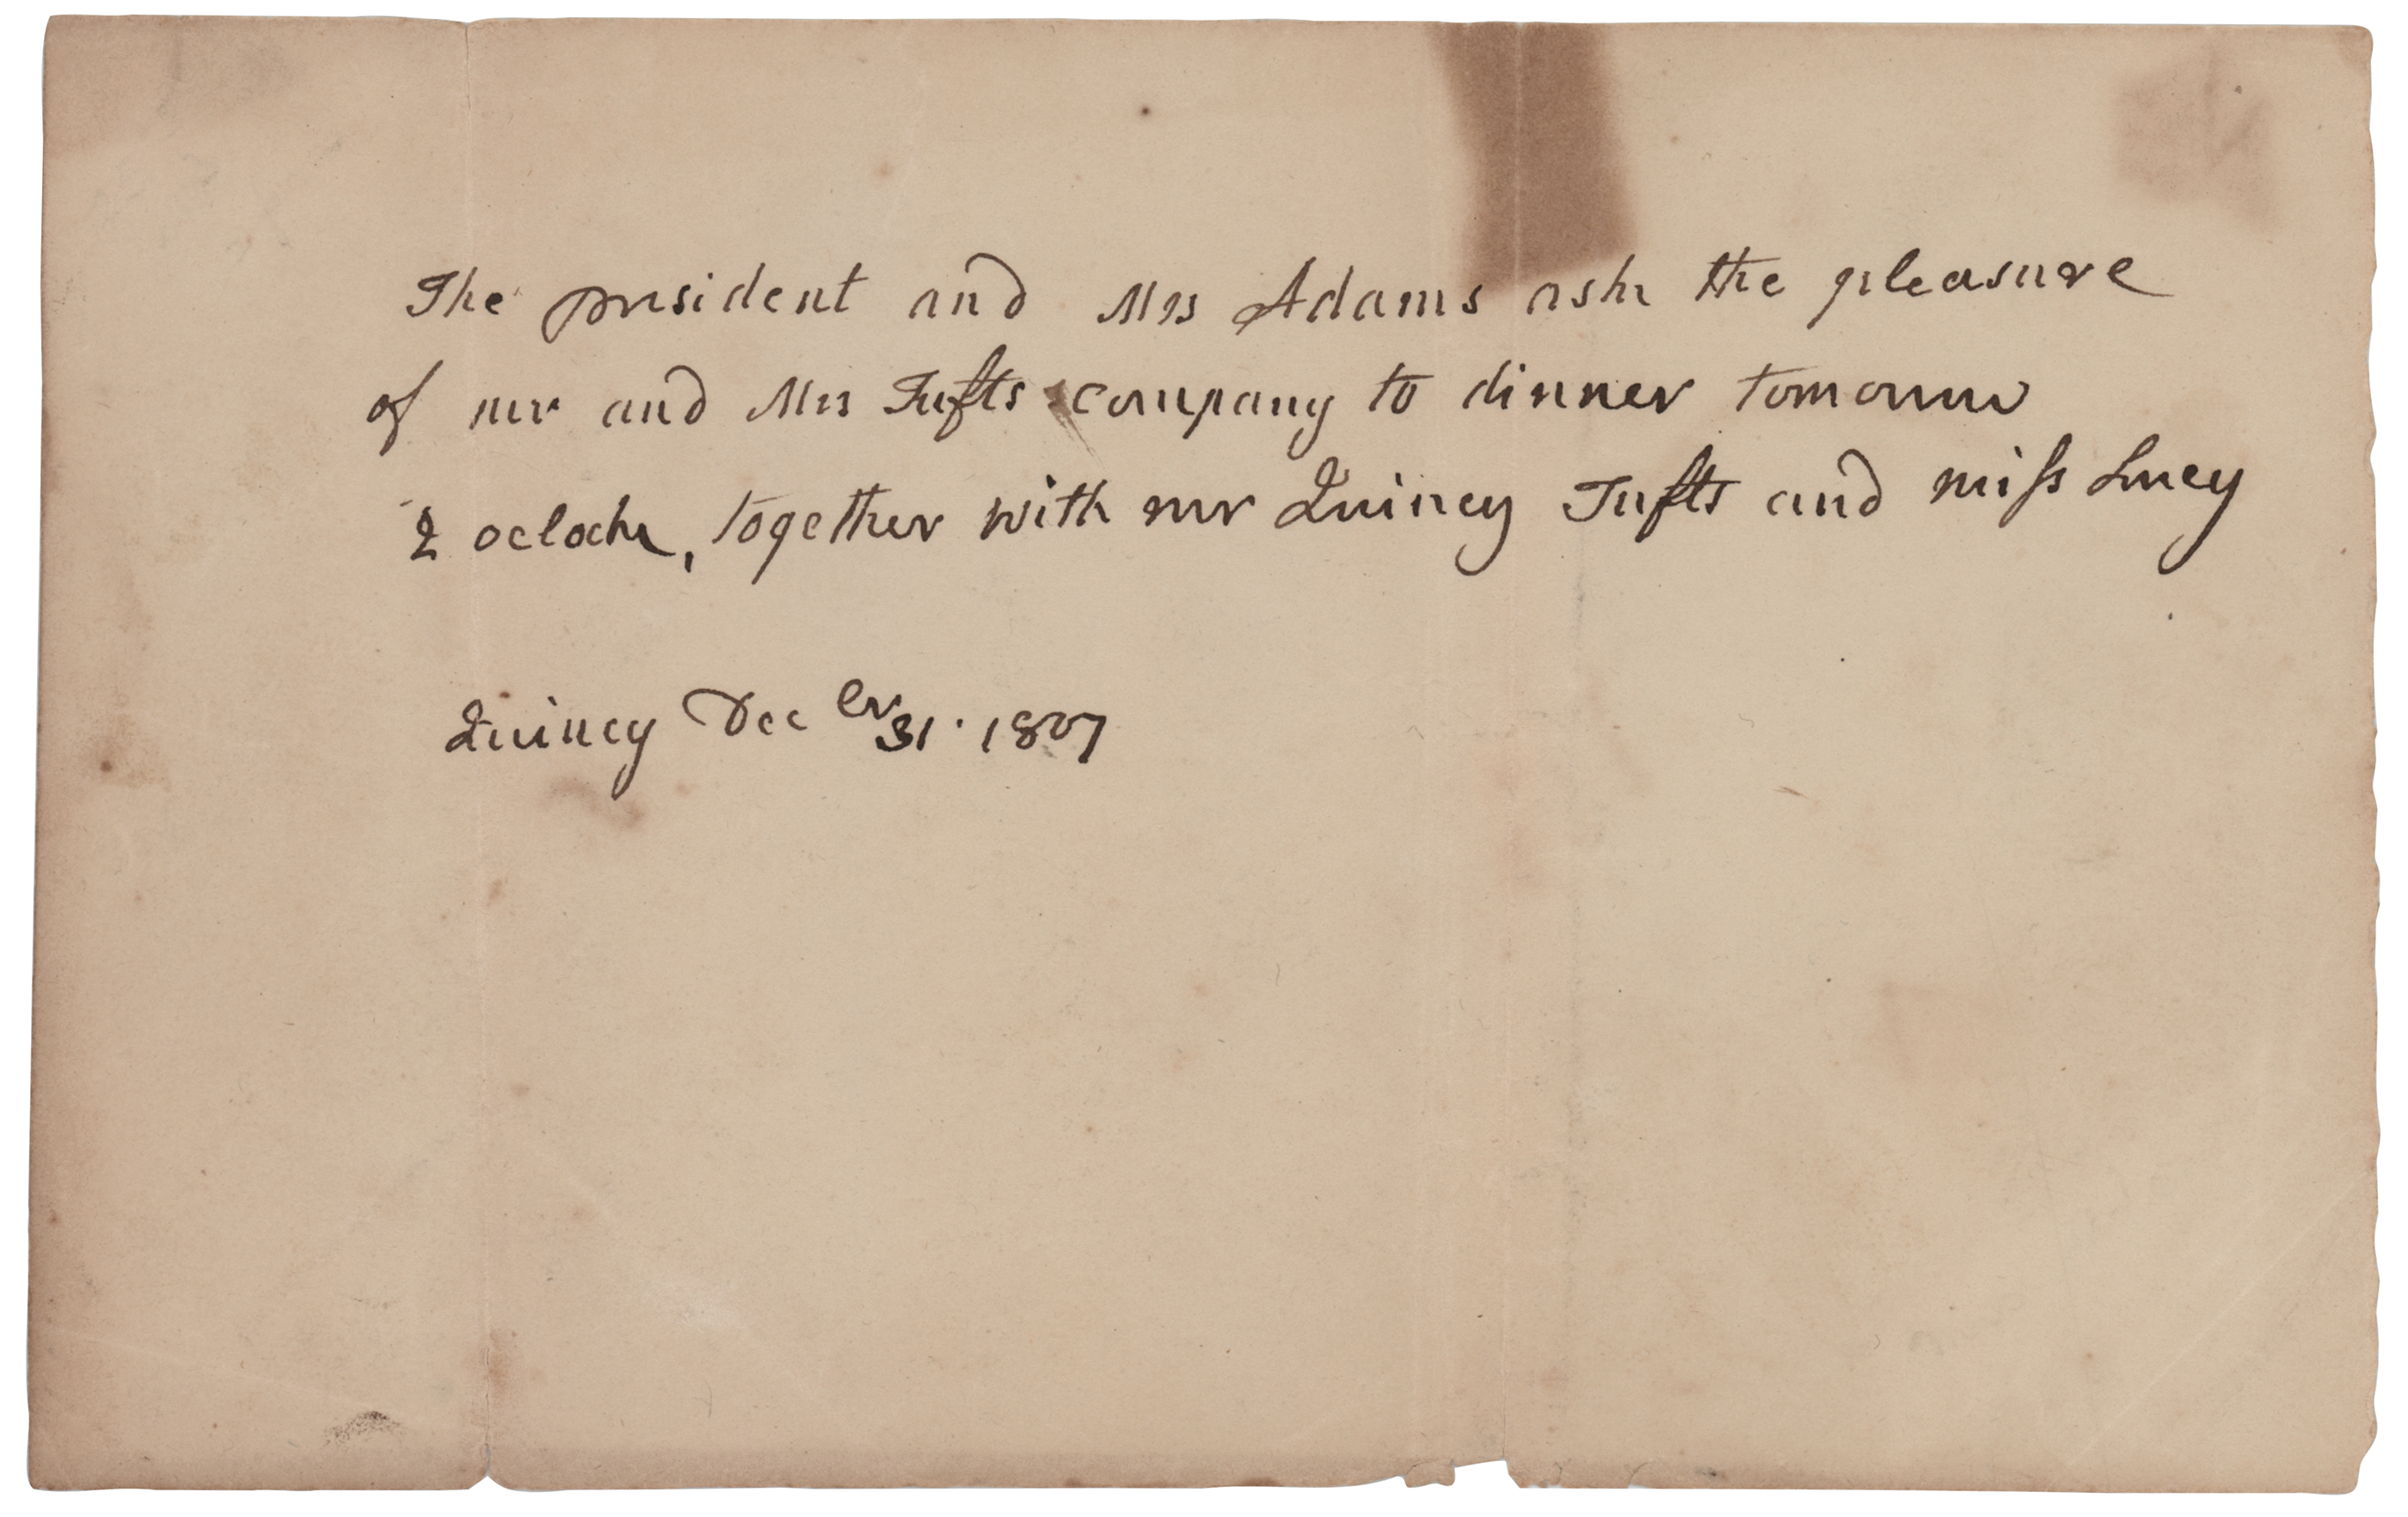 The president and Mrs Adams ask the pleasure
of mr and Mrs Tufts company to dinner tomorrow
2 oclock, together with mr Quincy Tufts and miss Lucy
Quincy Dec er 31. 1807